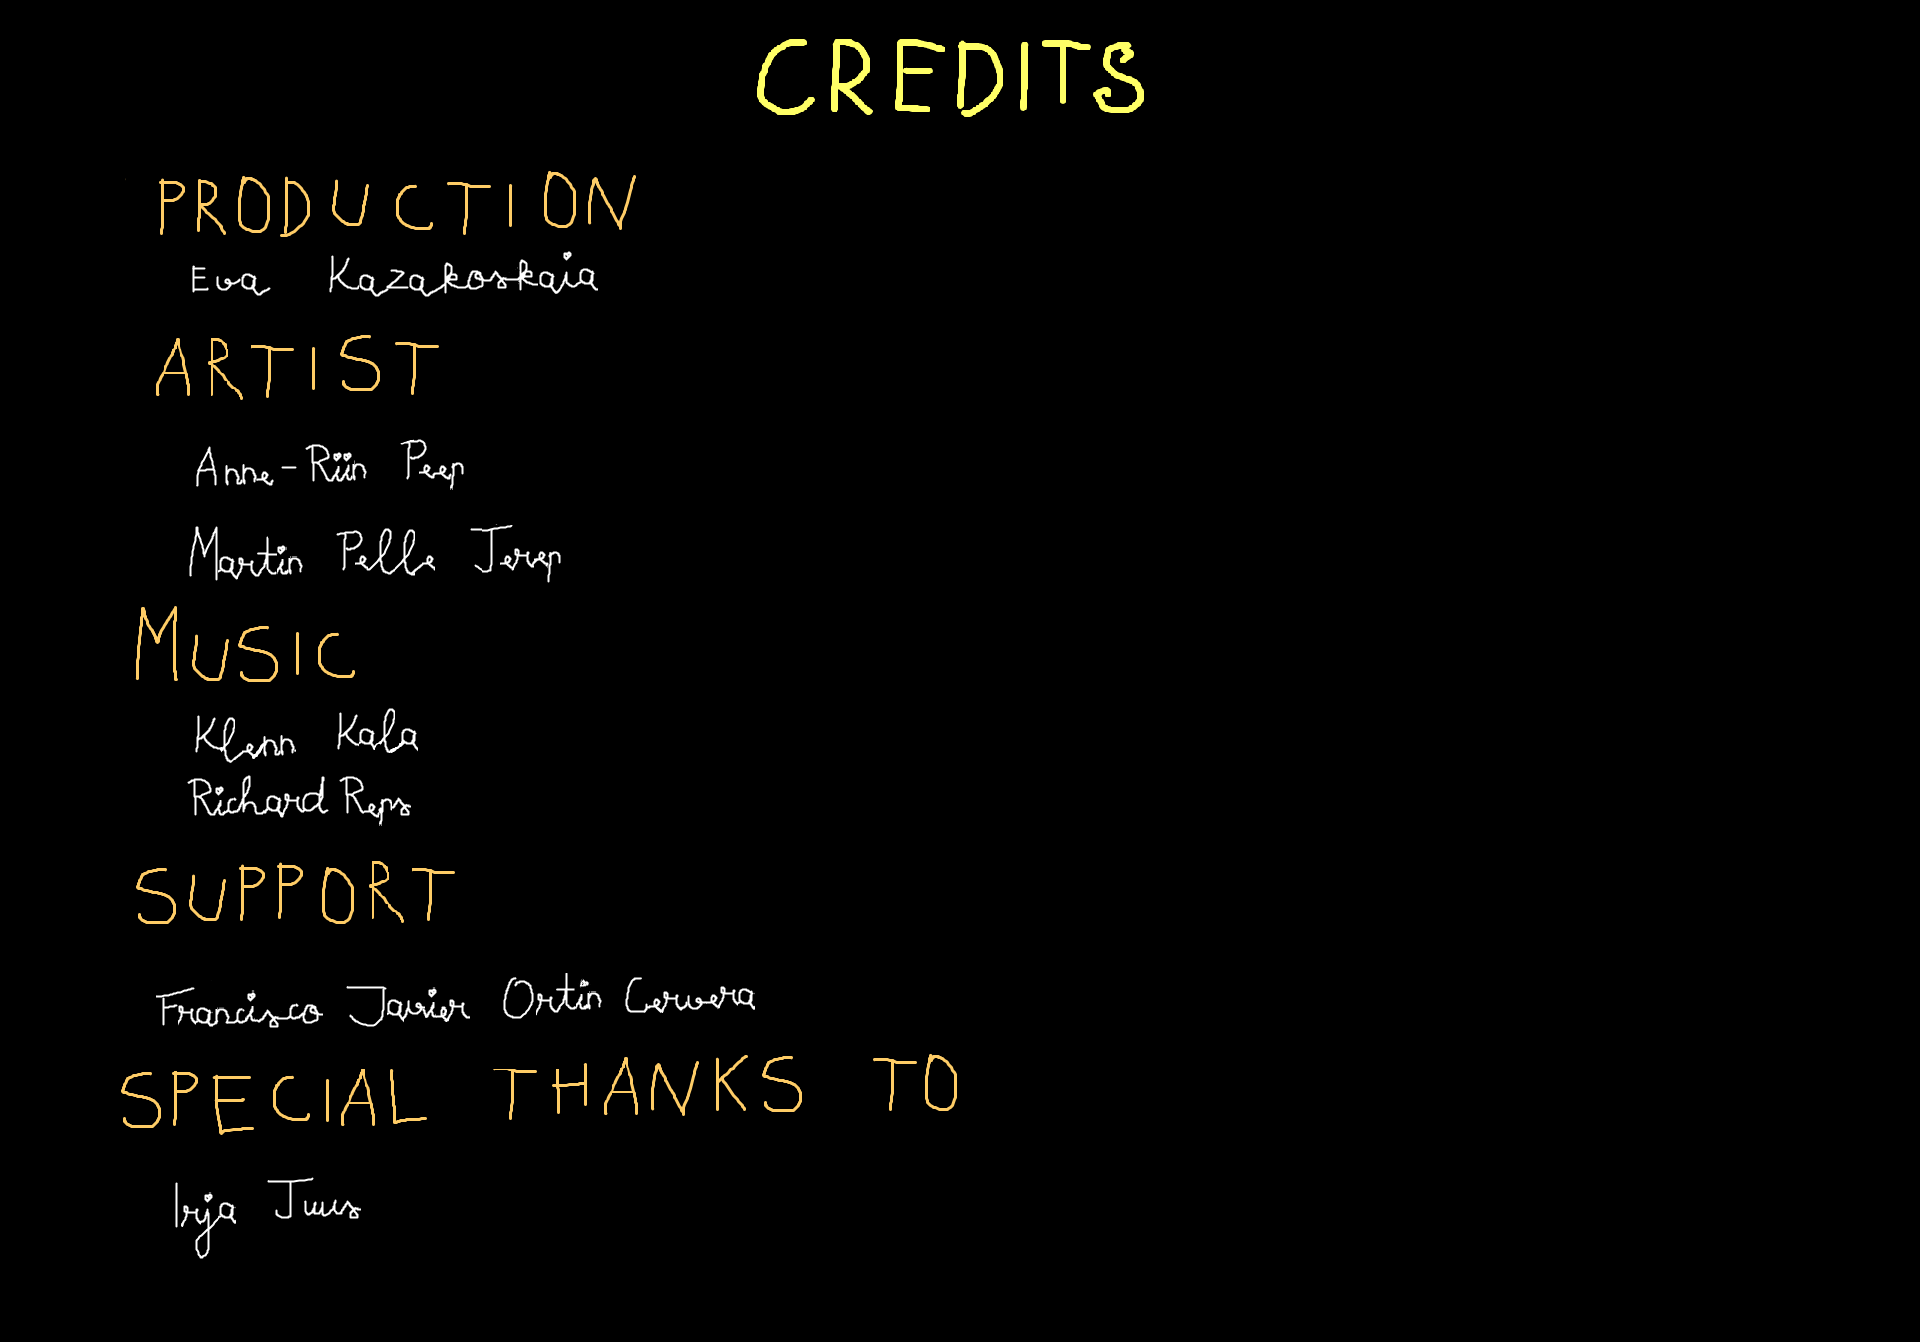 CREDITS
PRODUCTION
Eva Kazakoskaia
ARTIST
Anne-Riin Peep
Martin Pelle Jerep
MUSIC
Klenn Kala
Richard Reps
SUPPORT
Francisco Javier Ortin Cervera
SPECIAL THANKS TO
Irja Juus